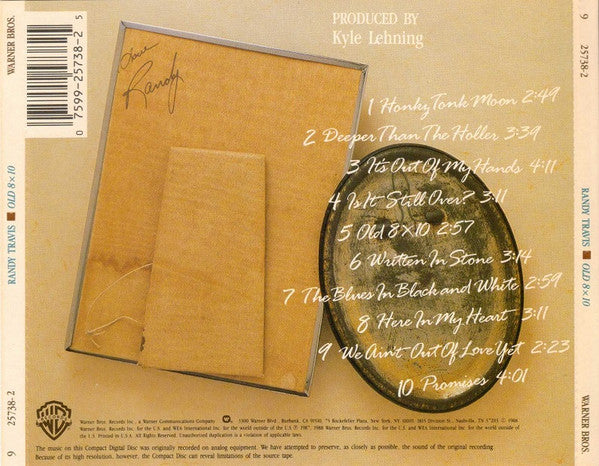 WARNER BROS.
RANDY TRAVIS OLD 8×10
25738-2
9
0 7599-25738-2 5
Love
Randy
PRODUCED BY
Kyle Lehning
1 Honky Tonk Moon 2:49
2 Deeper Than The Holler 3:39
3 It's Out Of My Hands 4:11
4 Is It Still Over? 3:11
5 Old 8×10 2:57
6 Written In Stone 3:14
7 The Blues In Black and White 2:59
8 Here In My Heart 3:11
9 We Ain't Out Of Love Yet 2:23
10 Promises 4:01
WB
Warner Bros. Records Inc., a Warner Communications Company
3300 Warner Blvd., Burbank, CA 91510
75 Rockefeller Plaza, New York, NY 10019
Warner Bros. Records Inc. for the U.S. and WEA International Inc. for the world outside of the U.S. ℗ 1987, 1988 Warner Bros. Records Inc. for the U.S. and WEA International Inc. for the world outside of
the U.S. Printed in U.S.A. All Rights Reserved. Unauthorized duplication is a violation of applicable laws.
The music on this Compact Digital Disc was originally recorded on analog equipment. We have attempted to preserve, as closely as possible, the sound of the original recording.
Because of its high resolution, however, the Compact Disc can reveal limitations of the source tape.
9 25738-2
RANDY TRAVIS OLD 8×10
WARNER BROS.